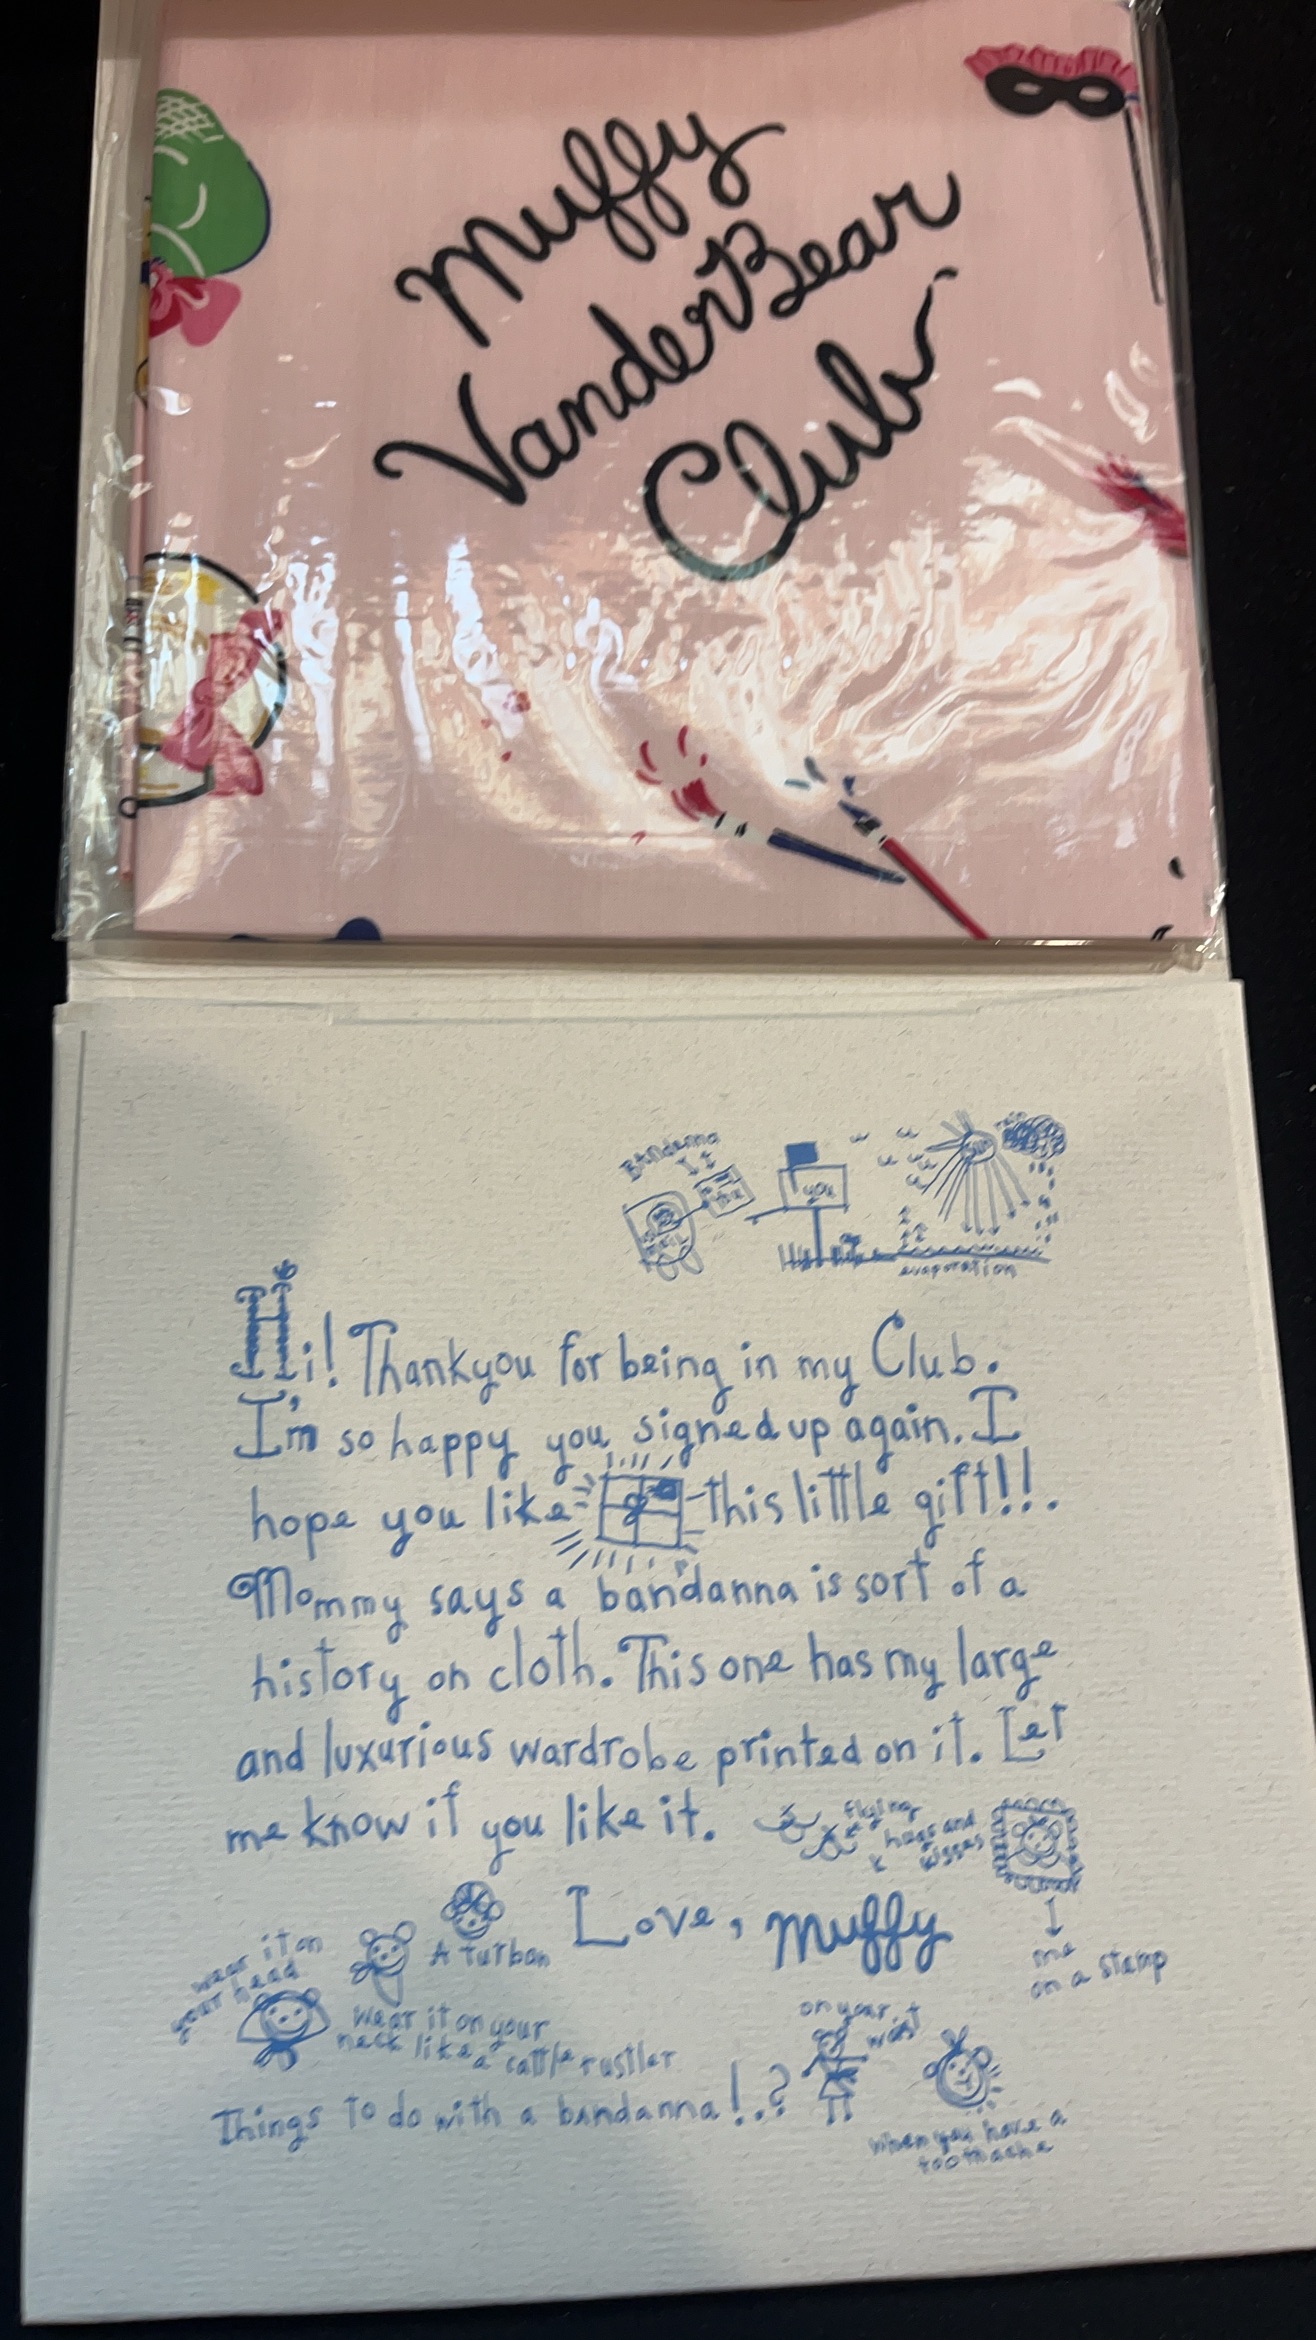 Muffy
VanderBear
Club
Bandanna
you
sun
rain
evaporation
Hi! Thankyou for being in my Club.
I'm so happy you signed up again. I
hope you like this little gift!!!.
Mommy says a bandanna is sort of a
history on cloth. This one has my large
and luxurious wardrobe printed on it. Let
me know if you like it.
flying
hugs and
kisses
Love, Muffy
me
on a stamp
wear it on
your head
A turban
wear it on your
neck like a cattle rustler
on your
waist
Things to do with a bandanna!..?
when you have a
toothache